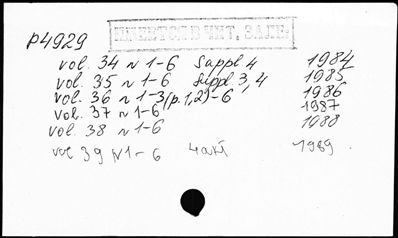 P4929
ИМЕЕТСЯ В ЧИТ. ЗАЛЕ
vol. 34 N 1-6 Suppl 4 1984
vol. 35 N 1-6 Suppl 3,4 1985
vol. 36 N 1-3(p.1,2)-6 1986
vol. 37 N 1-6 1987
vol. 38 N 1-6 1988
vol 39 N1-6 1989